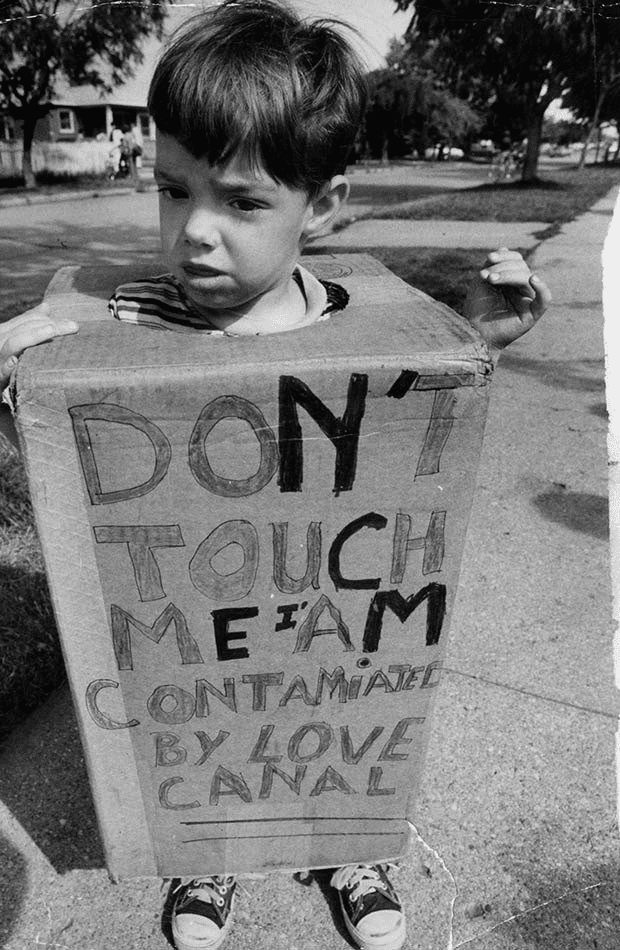 DON'T
TOUCH
ME I'AM
CONTAMiATED
BY LOVE
CANAL